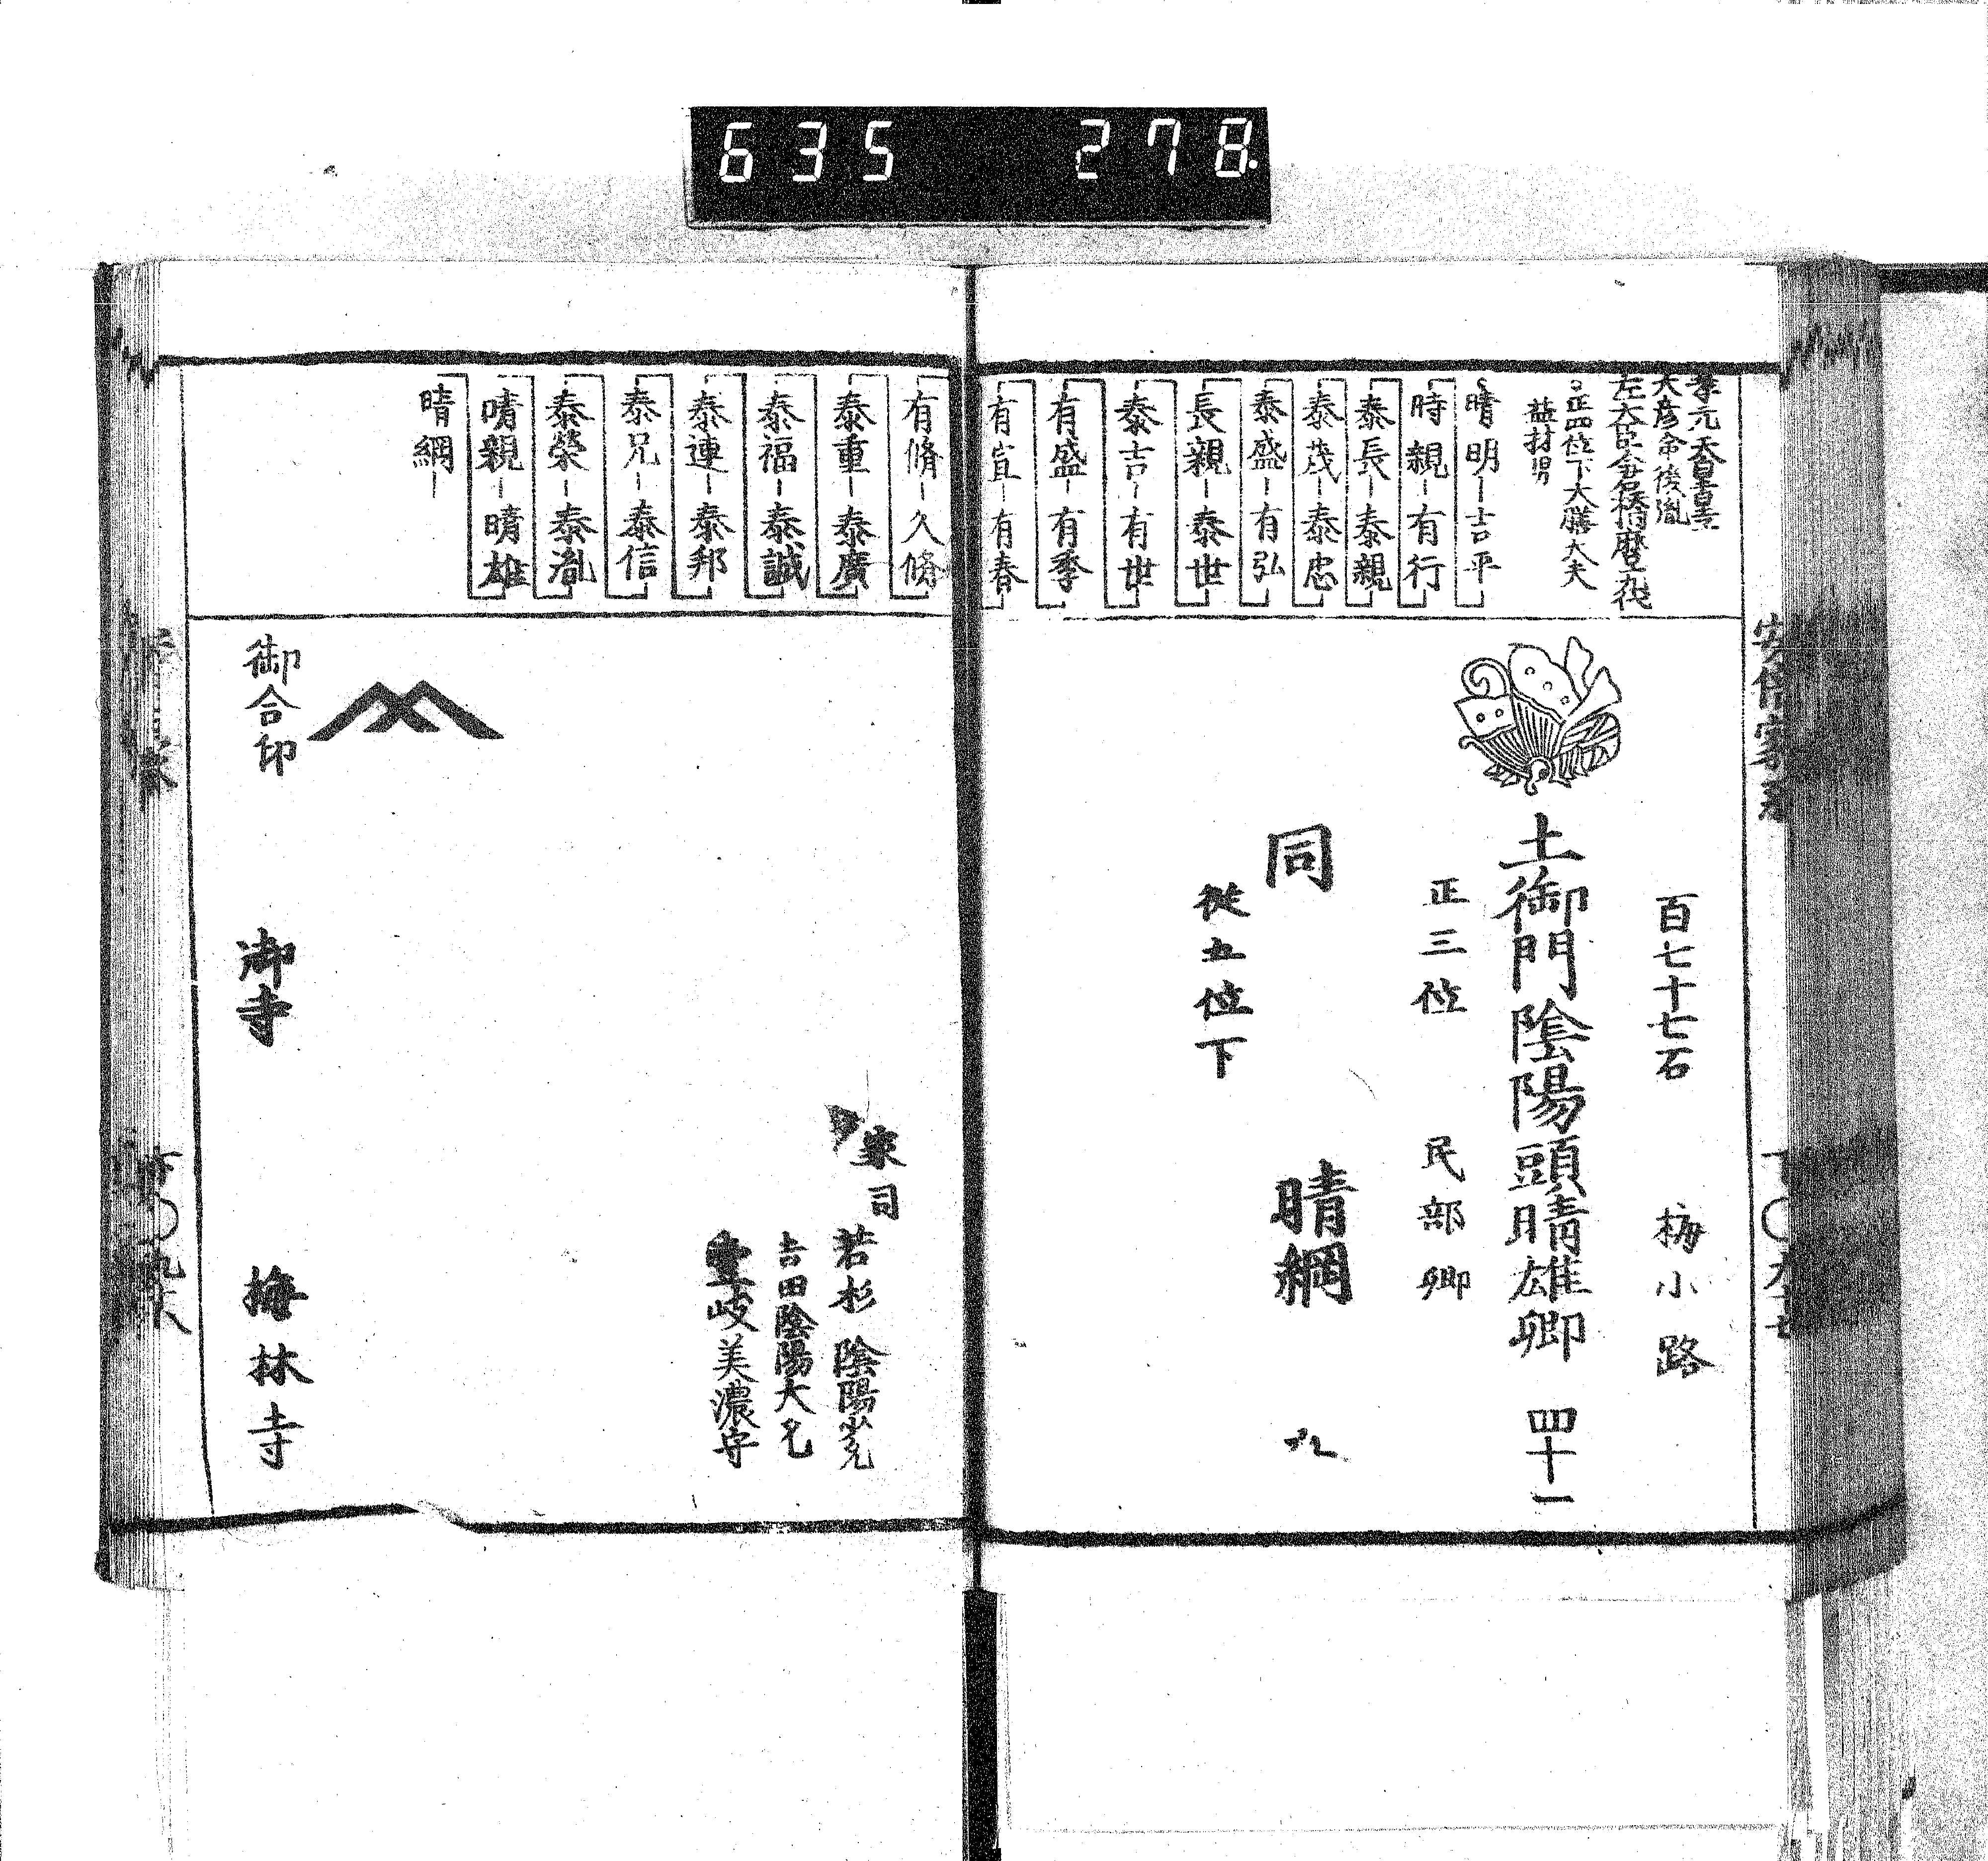 635 278.
孝元天皇皇子
大彦命後胤
左大臣倉橋麿九代
正四位下大膳大夫
益材男
晴明-吉平
時親-有行
泰長-泰親
泰茂-泰忠
泰盛-有弘
長親-泰世
泰吉-有世
有盛-有季
有宣-有春
百七十七石 梅小路
土御門陰陽頭晴雄卿 四十一
正三位 民部卿
同 晴綱 九
従五位下
有脩-久脩
泰重-泰廣
泰福-泰誠
泰連-泰邦
泰兄-泰信
泰榮-泰胤
晴親-晴雄
晴綱-
家司
若杉陰陽少允
吉田陰陽大允
壹岐美濃守
御合印
御寺 梅林寺